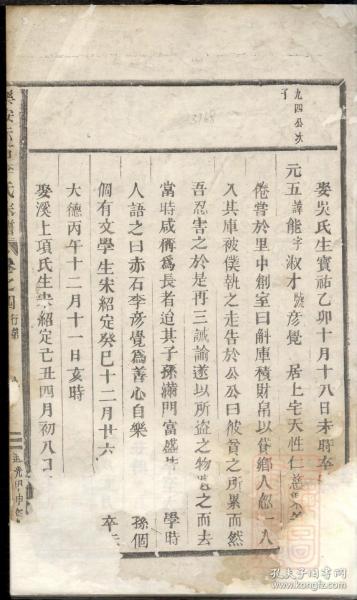 九四公次
子
娶吳氏生寶祐乙卯十月十八日未時卒
元五諱能字淑才號彥覺居上宅天性仁慈
倦嘗於里中創室曰斛庫積財帛以貸鄉人忽一人
入其庫被僕執之走告於公公曰彼貧之所累而然
吾忍害之於是再三誡諭遂以所盜之物遺之而去
當時咸稱為長者迨其子孫滿門富盛 學時
人語之曰赤石李彥覺為善心自樂 孫個
個有文學生宋紹定癸巳十二月廿六 卒
大德丙午十二月十一日亥時
娶溪上項氏生宋紹定己丑四月初八日
卷之四 行第
孔夫子旧书网